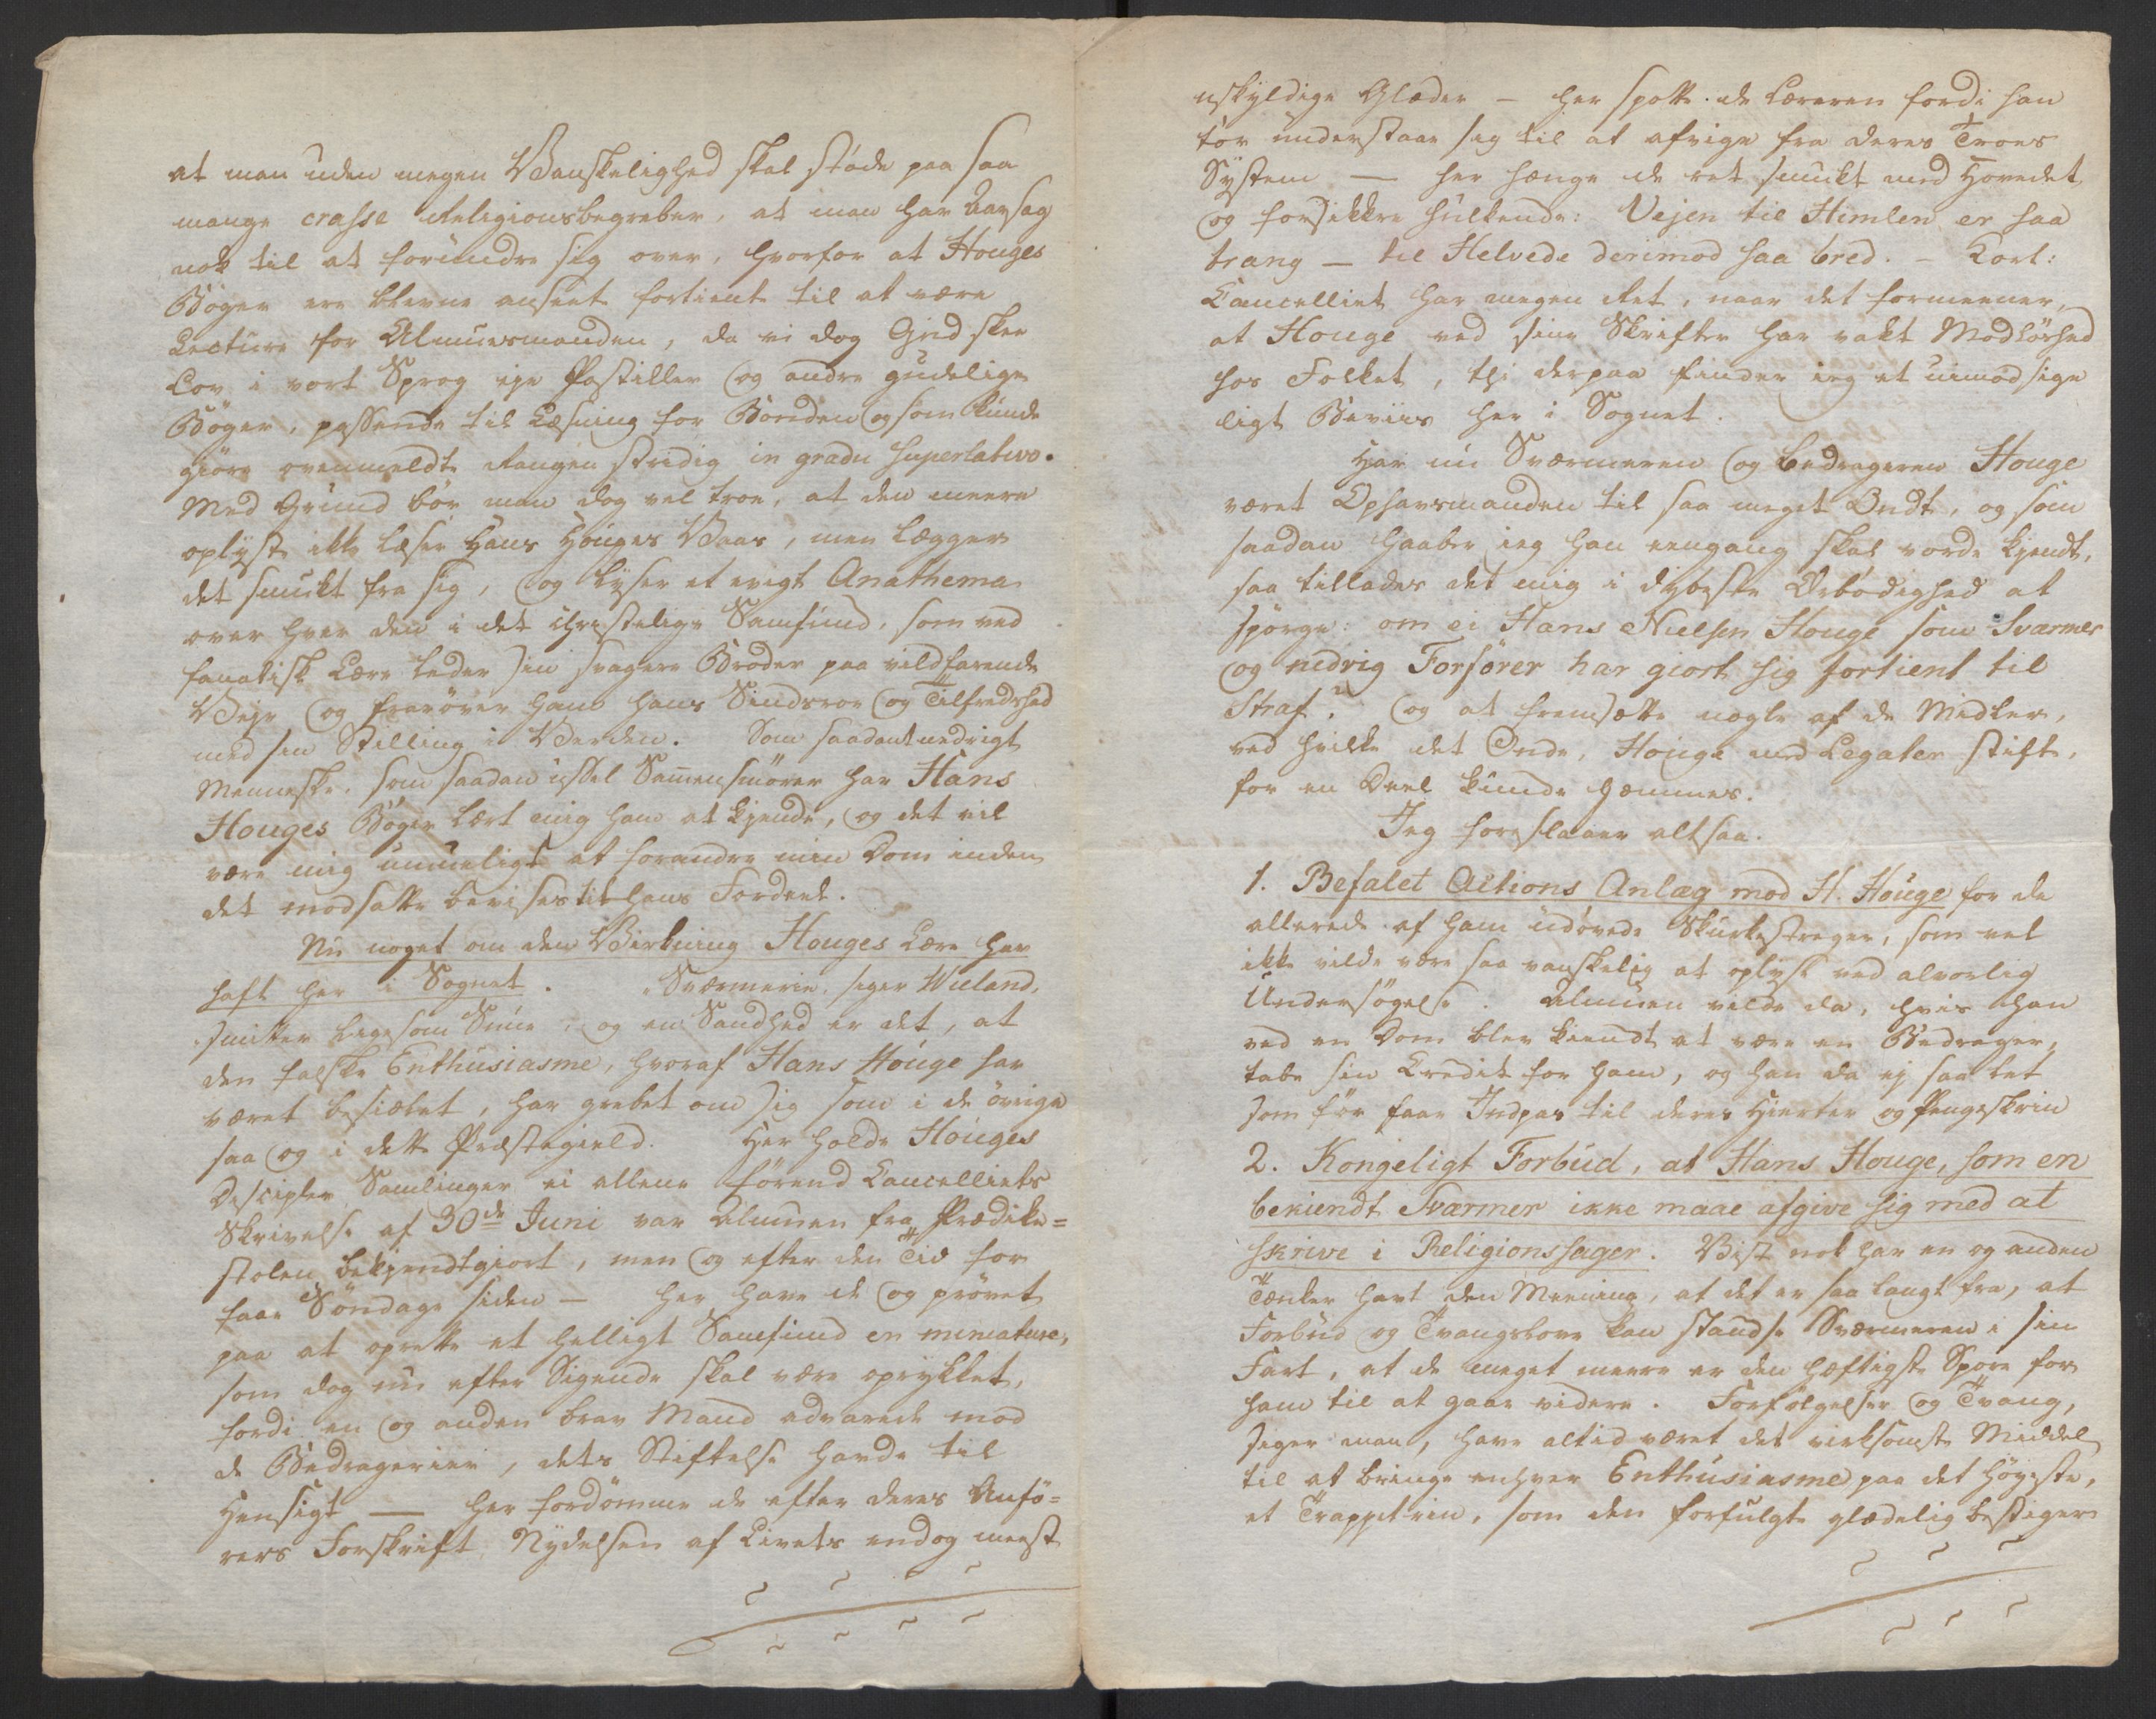 at man uden megen Vanskelighed skal støde paa saa
mange crasse Religionsbegreber, at man har Aarsag
nok til at forundre sig over, hvorfor at Houges
Bøger ere blevne anseet fortient til at være
Lecture for Almuesmanden, da vi dog Gud skee
Lov i vort Sprog eje Postiller og andre gudelige
Bøger, passende til Læsning for Bonden og som kunde
giøre ovenmeldte Rangen stridig in gradu superlativo.
Med Grund bør man dog vel troe, at den meere
oplyste ikke læser Hans Houges Vaas, men lægger
det smukt fra sig, og lyser et evigt Anathema
over hver den i det christelige Samfund, som ved
fanatisk Lære leder sin svagere Broder paa vildfarende
Veje og frarøver ham hans Sindsroe og Tilfredshed
med sin Stilling i Verden. Som saadant nedrigt
Menneske, som saadan ussel Sammensmører har Hans
Houges Bøger lært mig ham at kjende, og det vil
være mig umueligt at forandre min Dom inden
det modsatte bevises til hans Fordeel.
Nu noget om den Virkning Houges Lære har
haft her i Sognet. Sværmerie, siger Wieland,
smitter ligesom Snue, og en Sandhed er det, at
den falske Enthusiasme, hvoraf Hans Houge har
været besiælet, har grebet om sig som i de øvrige
saa og i dette Præstegield. Her holdt Houges
Disciple Samlinger ei allene førend Cancelliets
Skrivelse af 30de Juni var Almuen fra Prædike=
stolen bekjendtgiort, men og efter den Tid for
faae Søndage siden — her have de og prøvet
paa at oprette et helligt Samfund en miniature,
som dog nu efter Sigende skal være oprykket,
fordi en og anden brav Mand advarede mod
de Bedragerier, dets Stiftelse havde til
Hensigt — her fordømme de efter deres Anfø=
rers Forskrift Nydelsen af Livets endog meest
uskyldige Glæder — her spotte de Læreren fordi han
tør understaae sig til at afvige fra deres Troes
System — her hænge de ret smukt med Hovedet
og forsikkre hulkende: Vejen til Himlen er saa
trang — til Helvede derimod saa bred. — Kort:
Cancelliet har megen Ret, naar det formeener,
at Houge ved sine Skrifter har vakt Modløshed
hos Folket, thi derpaa finder ieg et uimodsige
ligt Beviis her i Sognet.
Har nu Sværmeren og Bedrageren Houge
været Ophavsmanden til saa meget Ondt, og som
saadan haaber ieg han eengang skal vorde kjendt,
saa tillades det mig i dybeste Ærbødighed at
spørge: om ei Hans Nielsen Houge som Sværmer
og nedrig Forfører har giort sig fortient til
Straf? og at fremsætte nogle af de Midler,
ved hvilke det Onde, Houge med Legater stifte,
for en Deel kunde hæmmes.
Jeg foreslaaer altsaa.
1. Befalet Actions Anlæg mod H. Houge for de
allerede af ham udøvede Skurkestreger, som vel
ikke vilde være saa vanskelig at oplyse ved alvorlig
Undersøgelse. Almuen vilde da, hvis han
ved en Dom blev kiendt at være en Bedrager,
tabe sin Credit for ham, og han da ej saa let
som før faae Indpas til deres Hierter og Pengeskrin
2. Kongeligt Forbud, at Hans Houge, som en
bekiendt Sværmer ikke maae afgive sig med at
skrive i Religionssager. Vist nok har en og anden
Tænker havt den Meening, at det er saa langt fra, at
Forbud og Tvangslove kan standse Sværmeren i sin
Fart, at de meget meere er den hæftigste Spore for
ham til at gaae videre. Forfølgelser og Tvang,
siger man, have altid været det virksomste Middel
til at bringe enhver Enthusiasme paa det høyeste,
et Trappetrin, som den forfulgte glædelig bestiger